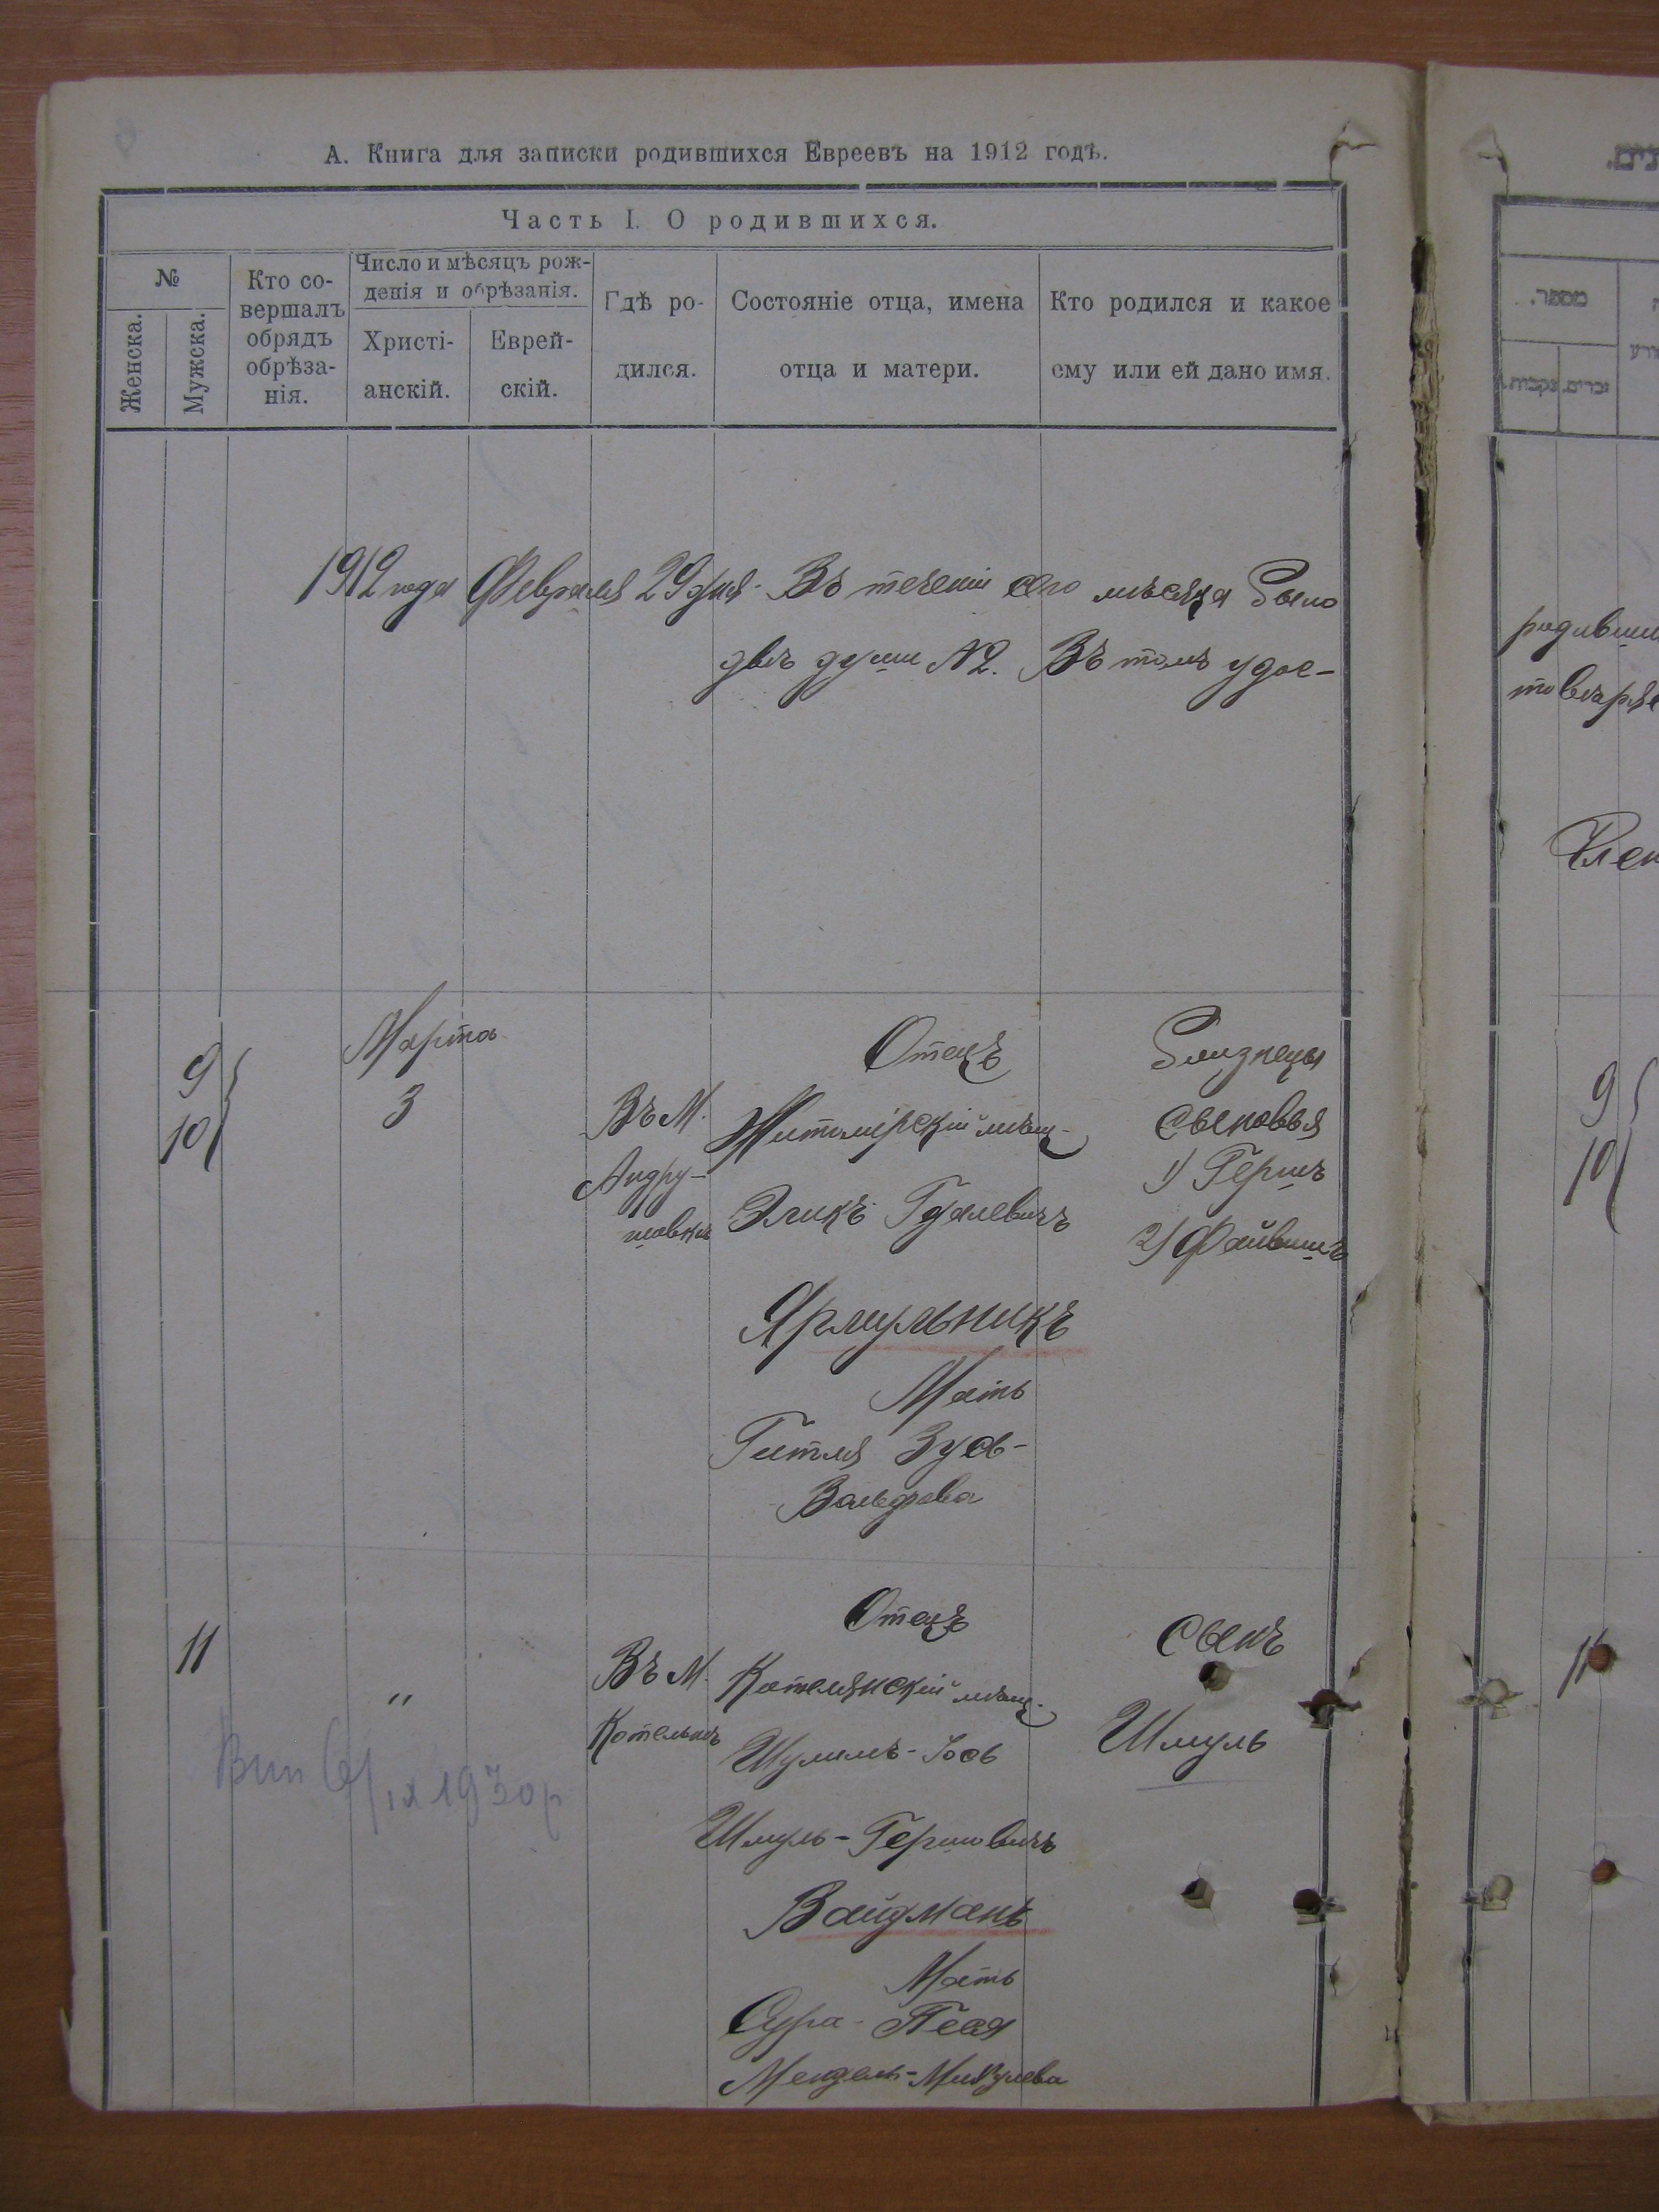 А. Книга для записки родившихся Евреевъ на 1912 годъ.
Часть I. О родившихся.
№
Женска.
Мужска.
Кто со-
вершалъ
обрядъ
обрѣза-
нія.
Число и мѣсяцъ рож-
денія и обрѣзанія.
Христі-
анскій.
Еврей-
скій.
Гдѣ ро-
дился.
Состояніе отца, имена
отца и матери.
Кто родился и какое
ему или ей дано имя.
1912 года Февраля 29 дня. Въ теченіи сего мѣсяца было
двѣ души №2. Въ томъ удос-
9
10
Марта
3
Въ М.
Андру-
шовкѣ
Отецъ
Житомірскій мѣщ.
Эликъ Гдалевичъ
Ярмульникъ
Мать
Гитля Зусь-
Вольфова
Близнецы
Сыновья
1) Гершъ
2) Файвишъ
11
"
Въ М.
Котельнѣ
Отецъ
Котелянскій мѣщ.
Шулимъ-Іось
Шмуль-Гершовичъ
Вайдманъ
Мать
Сура-Песя
Мендель-
Сынъ
Шмуль
1930 р
מספר.
זכרים.
נקבות.
9
10
11